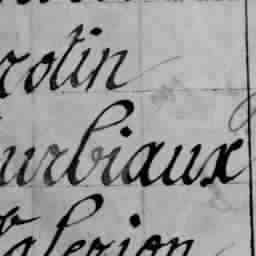 rotin
urbiaux
alerion